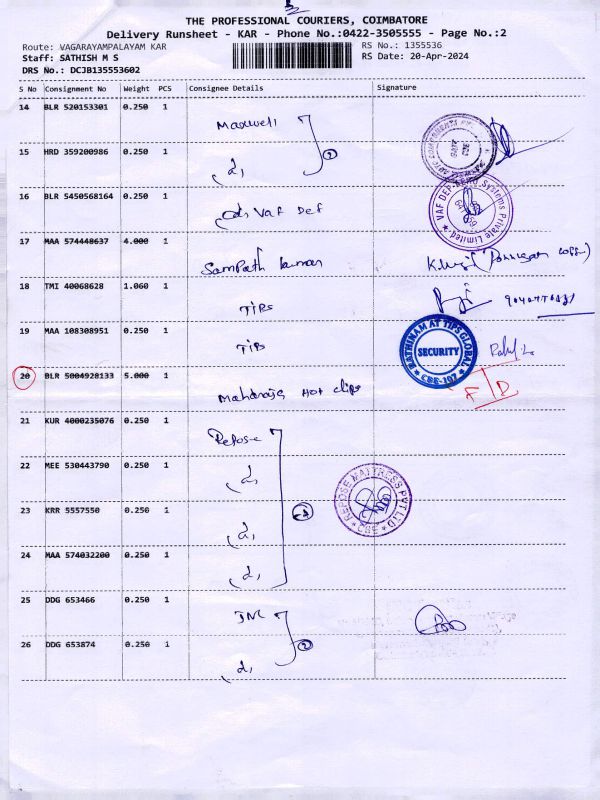 THE PROFESSIONAL COURIERS, COIMBATORE
Delivery Runsheet - KAR - Phone No.:0422-3505555 - Page No.:2
Route: VAGARAYAMPALAYAM KAR
RS No.: 1355536
Staff: SATHISH M S
RS Date: 20-Apr-2024
DRS No.: DCJB135553602
S No Consignment No Weight PCS Consignee Details Signature
14 BLR 520153301 0.250 1 Maxwell
15 HRD 359200986 0.250 1 d,
16 BLR 5450568164 0.250 1 VAF DEF
17 MAA 574448637 4.000 1 Sampath kumar
18 TMI 40068628 1.060 1 TIPS
19 MAA 108308951 0.250 1 TIPS RATHINAM AT TIPS GLOBAL SECURITY CBE-107
20 BLR 5004928133 5.000 1 Maharaja Hot chips F/D
21 KUR 4000235076 0.250 1 Repose
22 MEE 530443790 0.250 1 d,
23 KRR 5557550 0.250 1 d, REPOSE MATTRESS PVT LTD
24 MAA 574032200 0.250 1 d,
25 DDG 653466 0.250 1
26 DDG 653874 0.250 1 d,